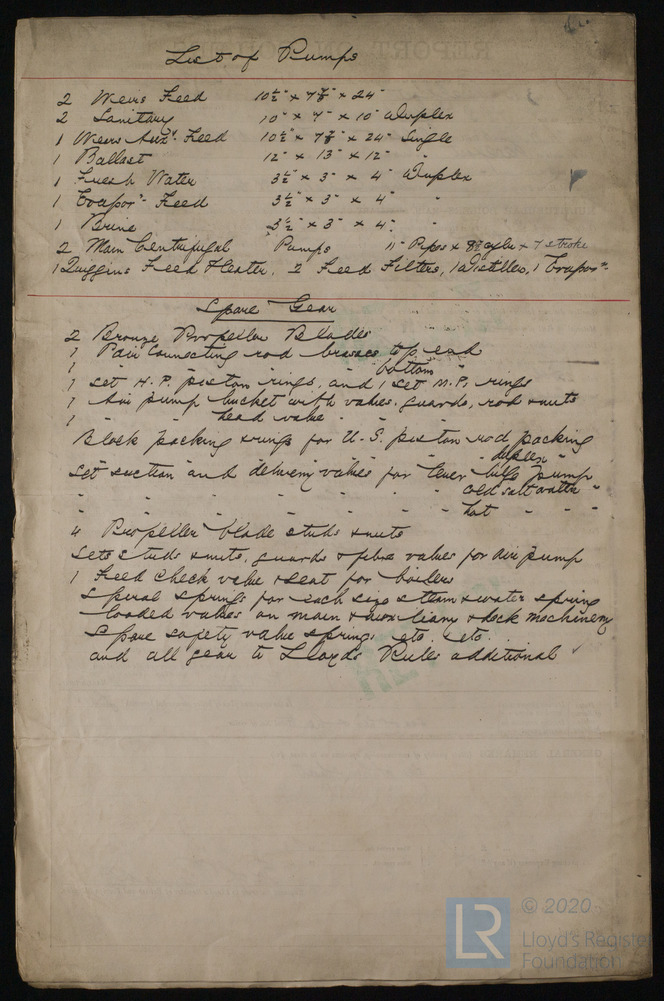 List of Pumps
2 Weirs Feed 10½" x 7⅞" x 24"
2 Sanitary 10" x 7" x 10" Duplex
1 Weirs Auxy. Feed 10½" x 7⅞" x 24" Single
1 Ballast 12" x 13" x 12" "
1 Fresh Water 3½" x 3" x 4" Duplex
1 Evapor. Feed 3½" x 3" x 4" "
1 Brine 3½" x 3" x 4" "
2 Main Centrifugal Pumps 11" Pipes x 8½ cylr x 7 stroke
1 Quiggins Feed Heater, 2 Feed Filters, 1 Distiller, 1 Evapor.
Spare Gear
2 Bronze Propeller Blades
1 Pair Connecting rod brasses top end
1 " " " " bottom "
1 set H.P. piston rings, and 1 set M.P. rings
1 Air pump bucket with valves, guards, rod & nuts
1 " " head valve " " "
Block packing & rings for U.S. piston rod packing
Set suction and delivery valves for lever bilge pump
" " " " " " " cold salt water "
" " " " " " " hot " " "
4 Propeller blade studs & nuts
Sets studs & nuts, guards & fibre valves for air pump
1 Feed check valve & seat for boilers
Spiral springs for each size steam & water spring
loaded valves on main & auxiliary & deck machinery
Spare safety valve springs etc. etc.
and all gear to Lloyds Rules additional
LR
© 2020
Lloyd's Register
Foundation